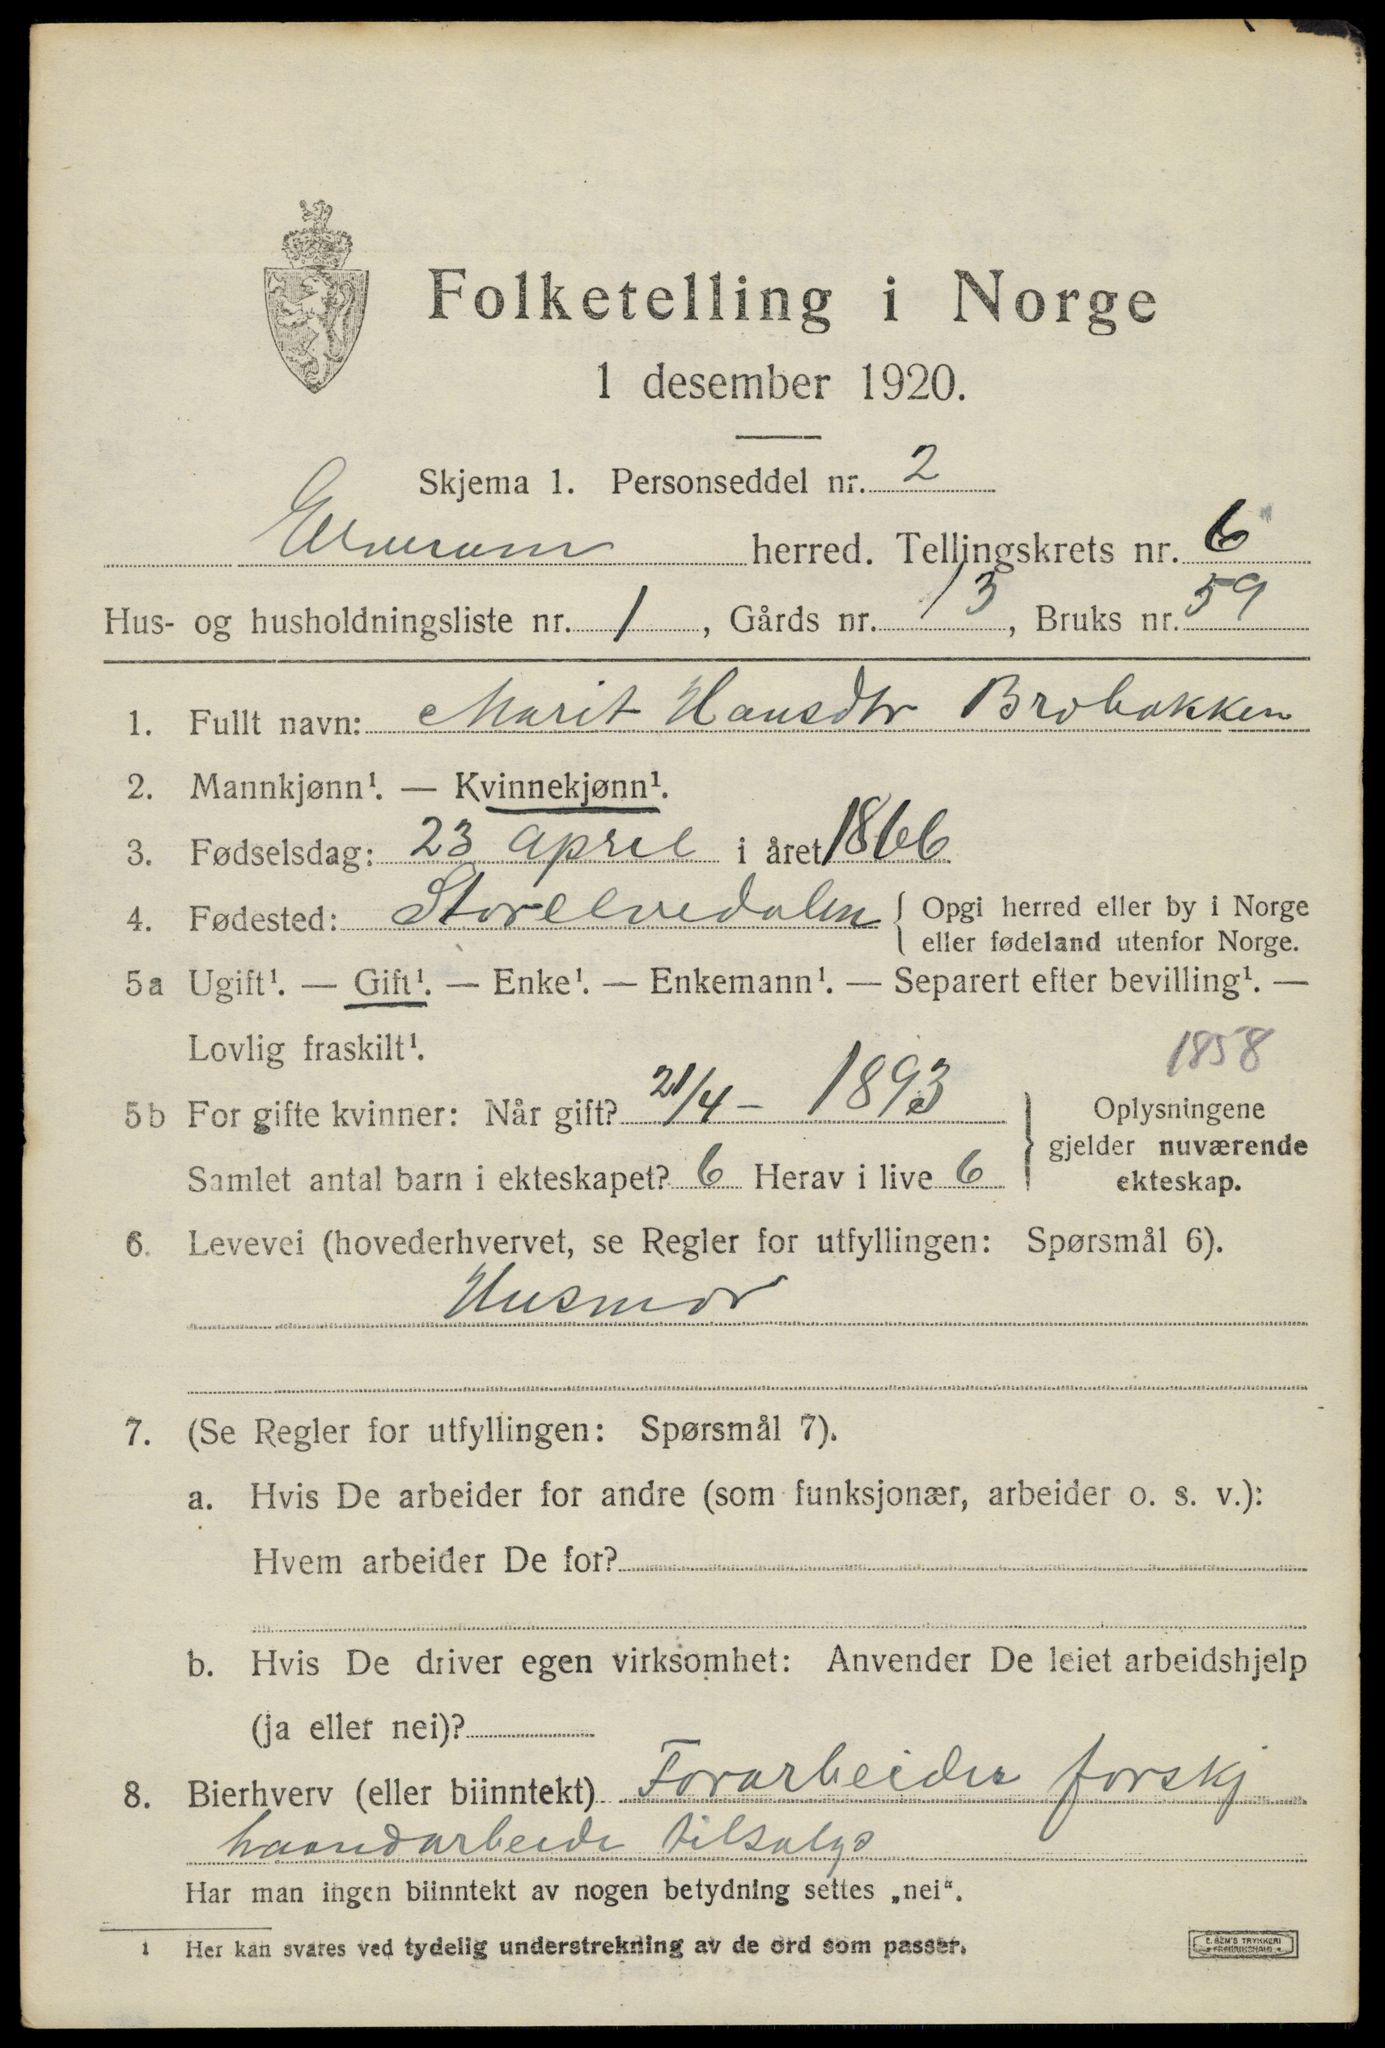 Folketelling i Norge
1 desember 1920.
Skjema 1. Personseddel nr. 2
Elverum herred. Tellingskrets nr. 6
Hus- og husholdningsliste nr. 1, Gårds nr. 13, Bruks nr. 59
1. Fullt navn: Marit Hansdtr Brobakken
2. Mannkjønn¹. — Kvinnekjønn¹.
3. Fødselsdag: 23 april i året 1866
4. Fødested: Storelvedalen { Opgi herred eller by i Norge
eller fødeland utenfor Norge.
5a Ugift¹. — Gift¹. — Enke¹. — Enkemann¹. — Separert efter bevilling¹. —
Lovlig fraskilt¹.
1858
5b For gifte kvinner: Når gift? 21/4 – 1893
Samlet antal barn i ekteskapet? 6 Herav i live 6
} Oplysningene
gjelder nuværende
ekteskap.
6. Levevei (hovederhvervet, se Regler for utfyllingen: Spørsmål 6).
Husmor
7. (Se Regler for utfyllingen: Spørsmål 7).
a. Hvis De arbeider for andre (som funksjonær, arbeider o. s. v.):
Hvem arbeider De for?
b. Hvis De driver egen virksomhet: Anvender De leiet arbeidshjelp
(ja eller nei)?
8. Bierhverv (eller biinntekt) Forarbeider forskj
haandarbeide tilsalgs
Har man ingen biinntekt av nogen betydning settes „nei“.
1 Her kan svares ved tydelig understrekning av de ord som passer.
E. SEM'S TRYKKERI
FREDRIKSHALD